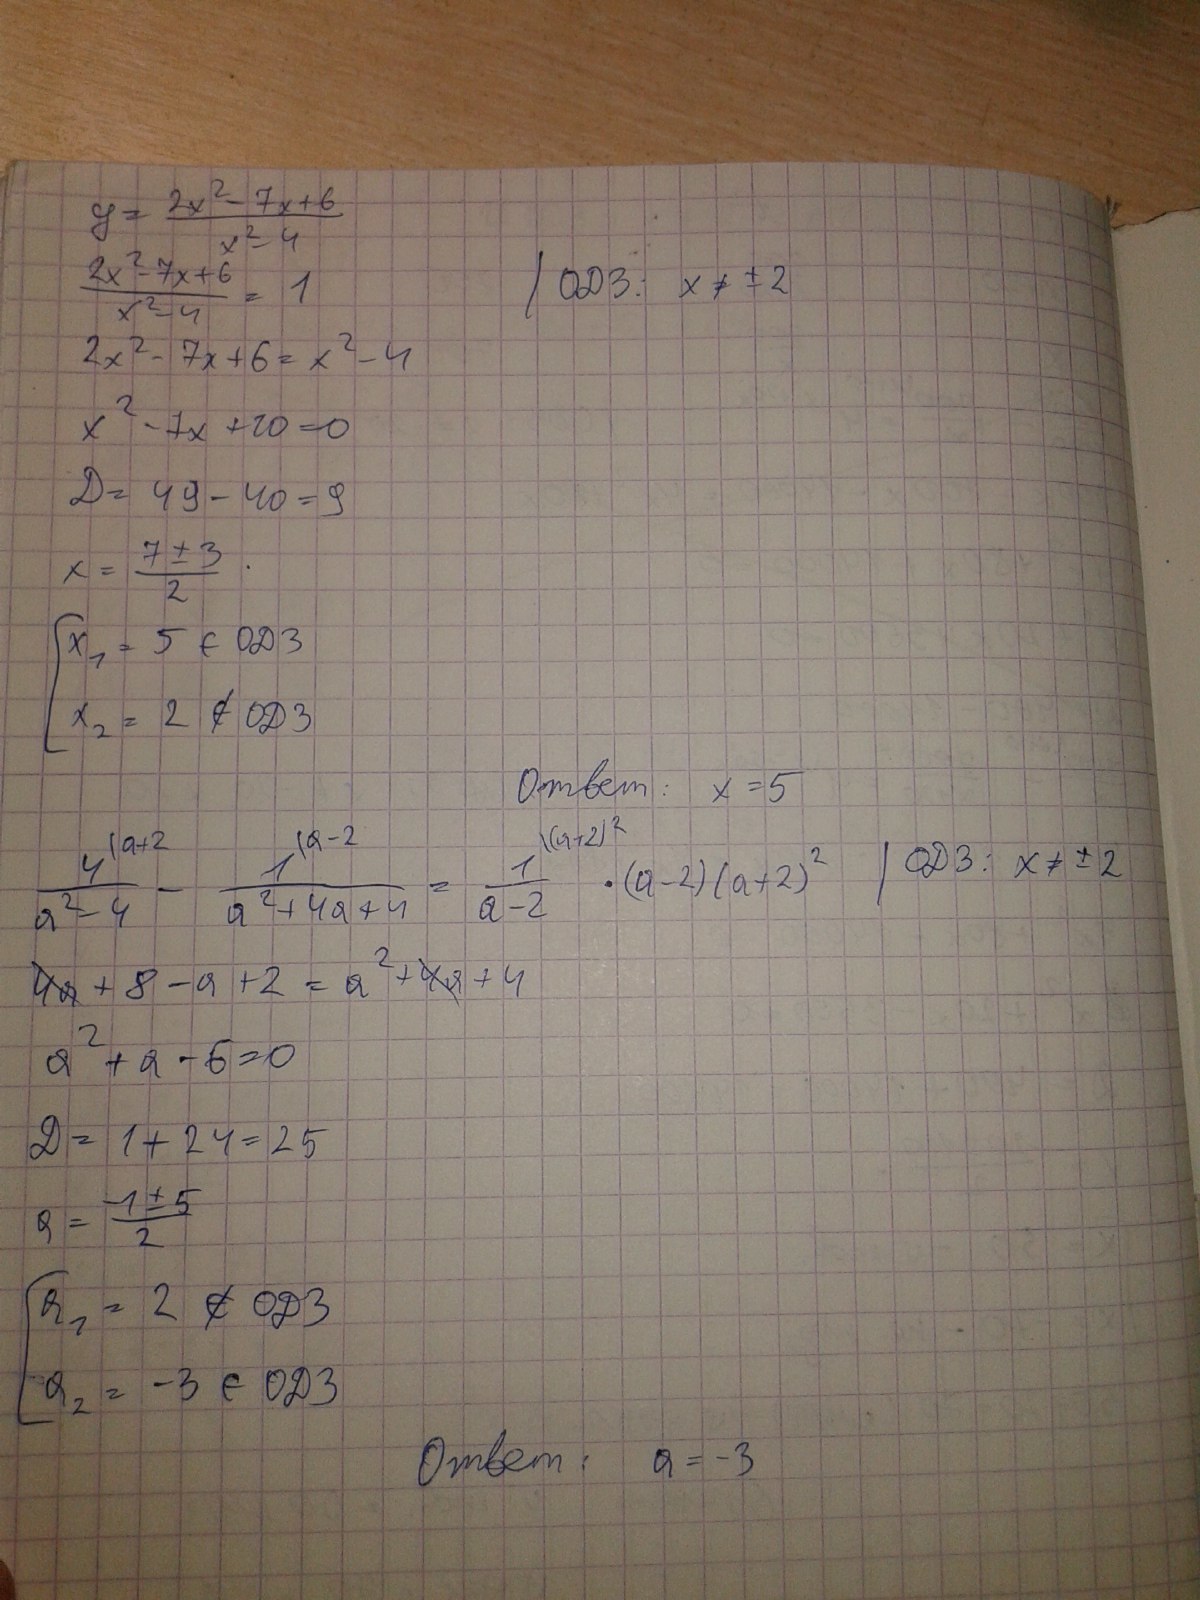 y = (2x² - 7x + 6)/(x² - 4)
(2x² - 7x + 6)/(x² - 4) = 1 / ОДЗ: x ≠ ±2
2x² - 7x + 6 = x² - 4
x² - 7x + 10 = 0
Д = 49 - 40 = 9
x = (7 ± 3)/2
[ x₁ = 5 ∈ ОДЗ
x₂ = 2 ∉ ОДЗ
Ответ: x = 5
4\(a+2/(a² - 4) - 1\(a-2/(a² + 4a + 4) = 1\(a+2)²/(a - 2) · (a-2)(a+2)² / ОДЗ: x ≠ ±2
4a + 8 - a + 2 = a² + 4a + 4
a² + a - 6 = 0
Д = 1 + 24 = 25
a = (-1 ± 5)/2
[ a₁ = 2 ∉ ОДЗ
a₂ = -3 ∈ ОДЗ
Ответ: a = -3